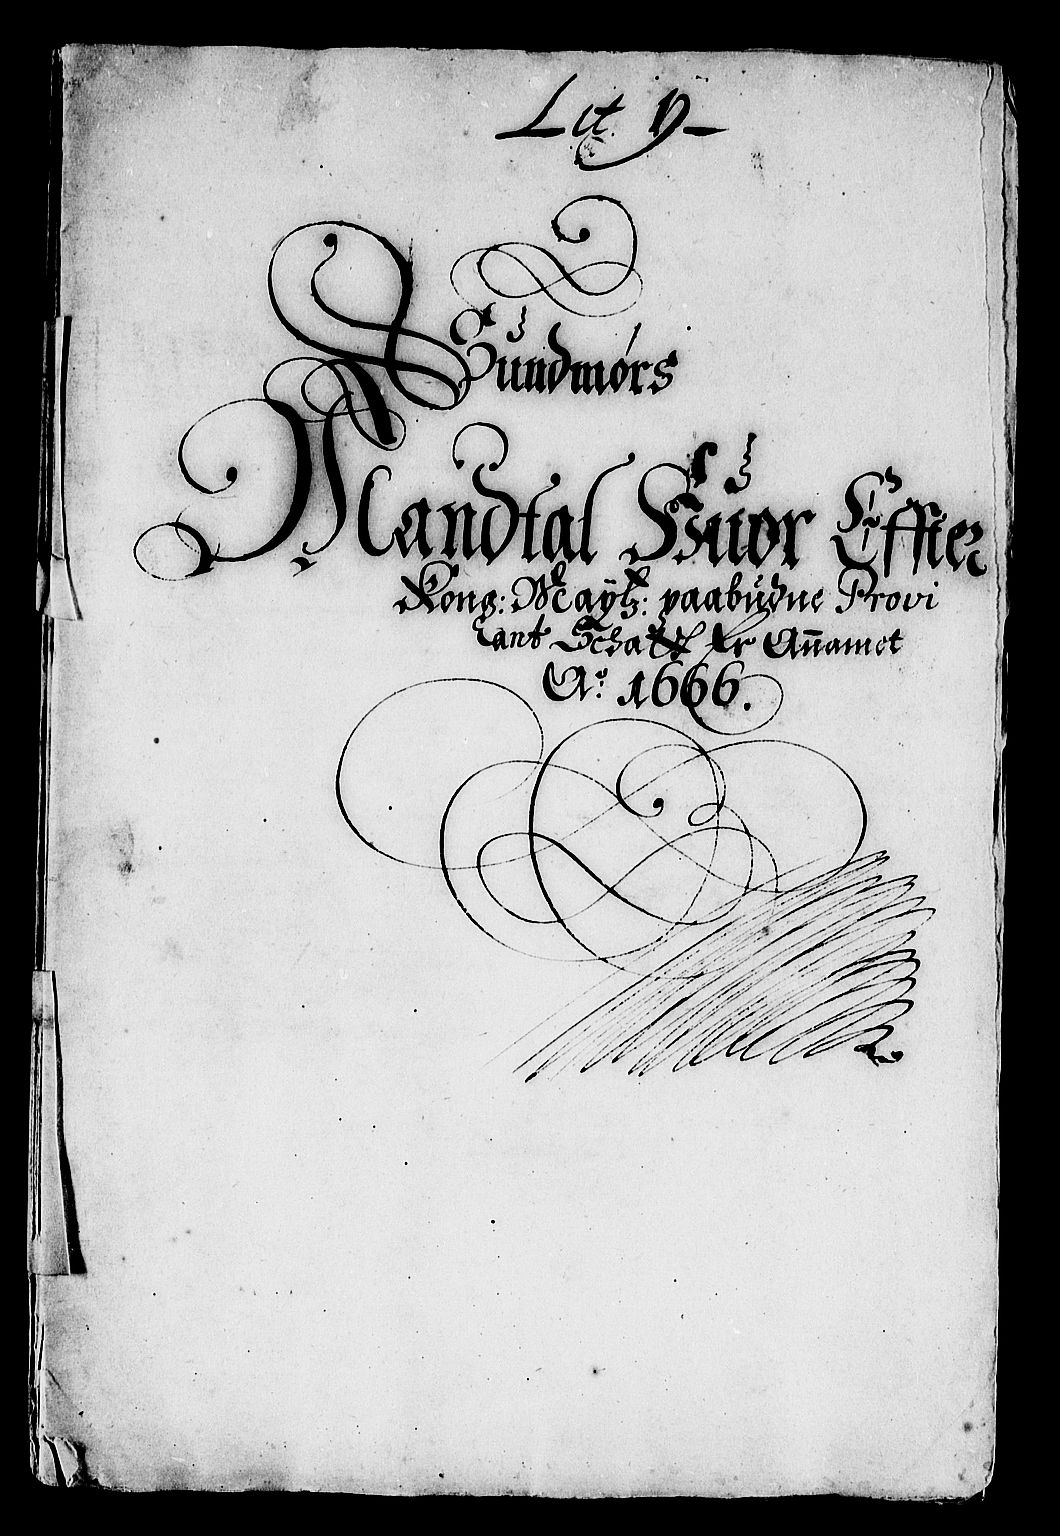 Lit D
Sundmørs
Mandtal Huor Effter
Kong: Mayts: paabudne Provi
ant Schatt Er Anamet
Ao. 1666.